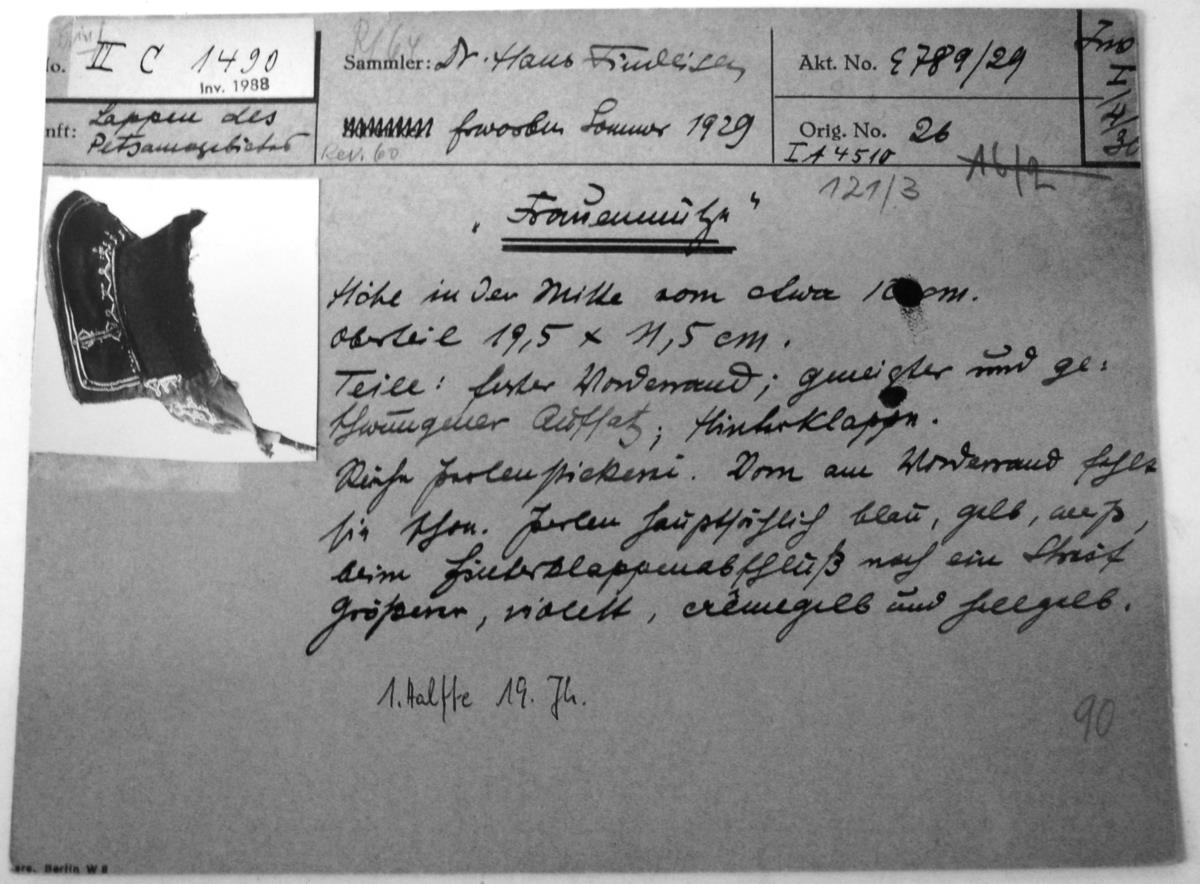 No. II C 1490
Inv. 1988
nft: Lappen des
Petsamogebietes
Rf 64
Sammler: Dr. Hans Findeisen
erworben Sommer 1929
Rev. 60
Akt. No. E789/29
Orig. No. 26
IA 4510
121/3
A6/2
„Frauenmütze“
Höhe in der Mitte vorn etwa 10 cm.
Oberteil 19,5 x 11,5 cm.
Teile: fester Vorderrand; geneigter und ge-
schwungener Aufsatz; Hinterklappe.
Reiche Perlenstickerei. Vorn am Vorderrand fehlt
sie schon. Perlen hauptsächlich blau, gelb, weiß,
beim Hinterklappenabschluß noch ein Streif
größerer, violett, crèmegelb und hellgelb.
1. Hälfte 19. Jh.
90
are, Berlin W 8